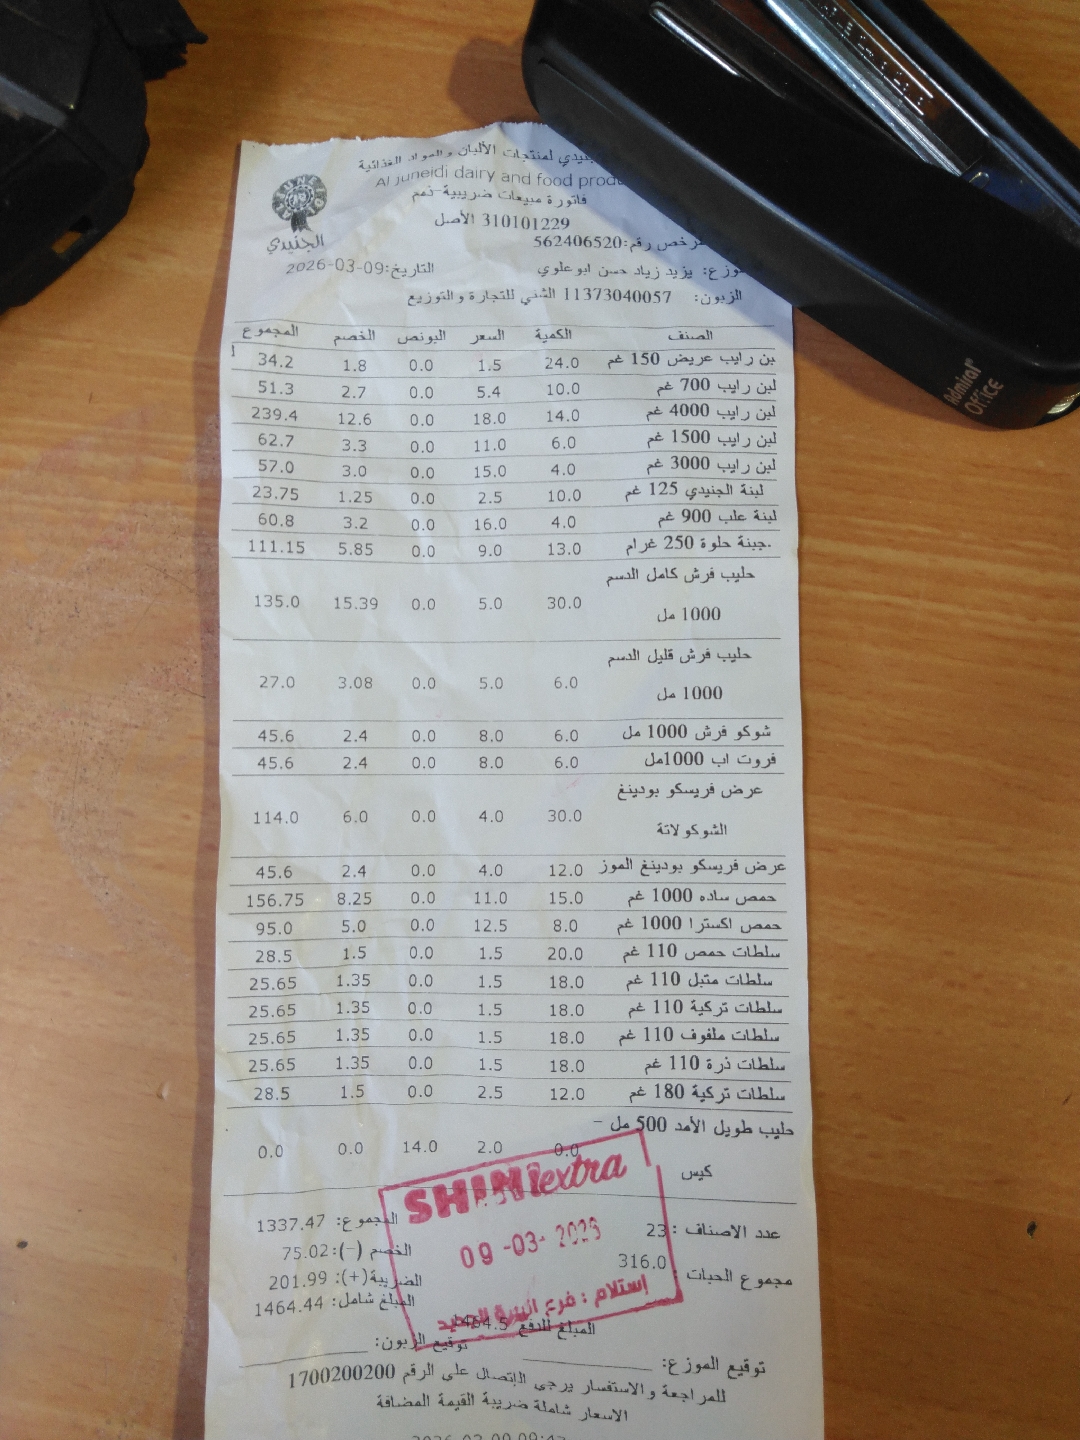 لمنتجات الألبان والمواد الغذائية
Al Juneidi dairy and food
فاتورة مبيعات ضريبية-ذمم
310101229 الأصل
الجنيدي
رقم:562406520
يزيد زياد حسن ابوعلوي التاريخ:2026-03-09
الزبون: 11373040057 الشني للتجارة والتوزيع
الصنف الكمية السعر البونص الخصم المجموع
بن رايب عريض 150 غم 24.0 1.5 0.0 1.8 34.2
لبن رايب 700 غم 10.0 5.4 0.0 2.7 51.3
لبن رايب 4000 غم 14.0 18.0 0.0 12.6 239.4
لبن رايب 1500 غم 6.0 11.0 0.0 3.3 62.7
لبن رايب 3000 غم 4.0 15.0 0.0 3.0 57.0
لبنة الجنيدي 125 غم 10.0 2.5 0.0 1.25 23.75
لبنة علب 900 غم 4.0 16.0 0.0 3.2 60.8
جبنة حلوة 250 غرام. 13.0 9.0 0.0 5.85 111.15
حليب فرش كامل الدسم
1000 مل 30.0 5.0 0.0 15.39 135.0
حليب فرش قليل الدسم
1000 مل 6.0 5.0 0.0 3.08 27.0
شوكو فرش 1000 مل 6.0 8.0 0.0 2.4 45.6
فروت اب 1000مل 6.0 8.0 0.0 2.4 45.6
عرض فريسكو بودينغ
الشوكولاتة 30.0 4.0 0.0 6.0 114.0
عرض فريسكو بودينغ الموز 12.0 4.0 0.0 2.4 45.6
حمص ساده 1000 غم 15.0 11.0 0.0 8.25 156.75
حمص اكسترا 1000 غم 8.0 12.5 0.0 5.0 95.0
سلطات حمص 110 غم 20.0 1.5 0.0 1.5 28.5
سلطات متبل 110 غم 18.0 1.5 0.0 1.35 25.65
سلطات تركية 110 غم 18.0 1.5 0.0 1.35 25.65
سلطات ملفوف 110 غم 18.0 1.5 0.0 1.35 25.65
سلطات ذرة 110 غم 18.0 1.5 0.0 1.35 25.65
سلطات تركية 180 غم 12.0 2.5 0.0 1.5 28.5
حليب طويل الأمد 500 مل -
كيس 0.0 2.0 14.0 0.0 0.0
SHINI extra
09-03-2026
إستلام : فرع
عدد الاصناف : 23 المجموع: 1337.47
الخصم (-): 75.02
مجموع الحبات : 316.0 الضريبة(+): 201.99
المبلغ شامل: 1464.44
المبلغ للدفع 1464.5
توقيع الموزع: توقيع الزبون:
للمراجعة والاستفسار يرجى الاتصال على الرقم 1700200200
الاسعار شاملة ضريبة القيمة المضافة
Admiral
OFFICE